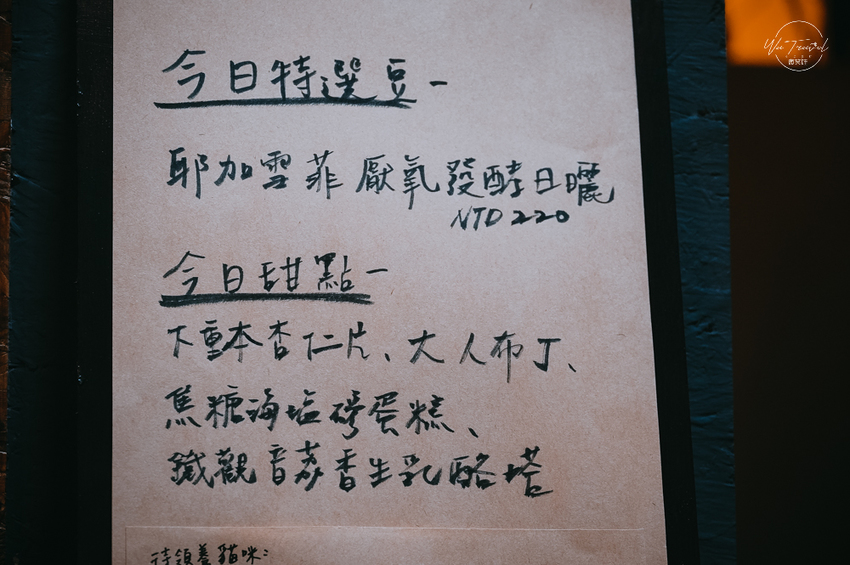 今日特選豆-
耶加雪菲 厭氧發酵日曬
NTD 220
今日甜點-
下重本杏仁片、大人布丁、
焦糖海塩磅蛋糕、
鐵觀音荔香生乳酪塔
待領養貓咪:
Wei Travel